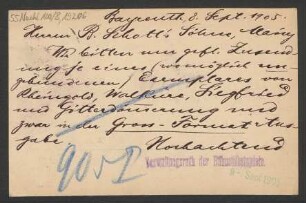 55 Nachl 100/B, 19206
Bayreuth, 8. Sept. 1905.
Herrn B. Schott's Söhne, Mainz
Wir bitten um gefl. Zusendung
eines (womöglich un
gebundenen) Exemplares von
Rheingold, Walküre, Siegfried
und Götterdämmerung und
zwar in der Gross-Format Aus-
gabe.
Hochachtend
Verwaltungsrath der Bühnenfestspiele.